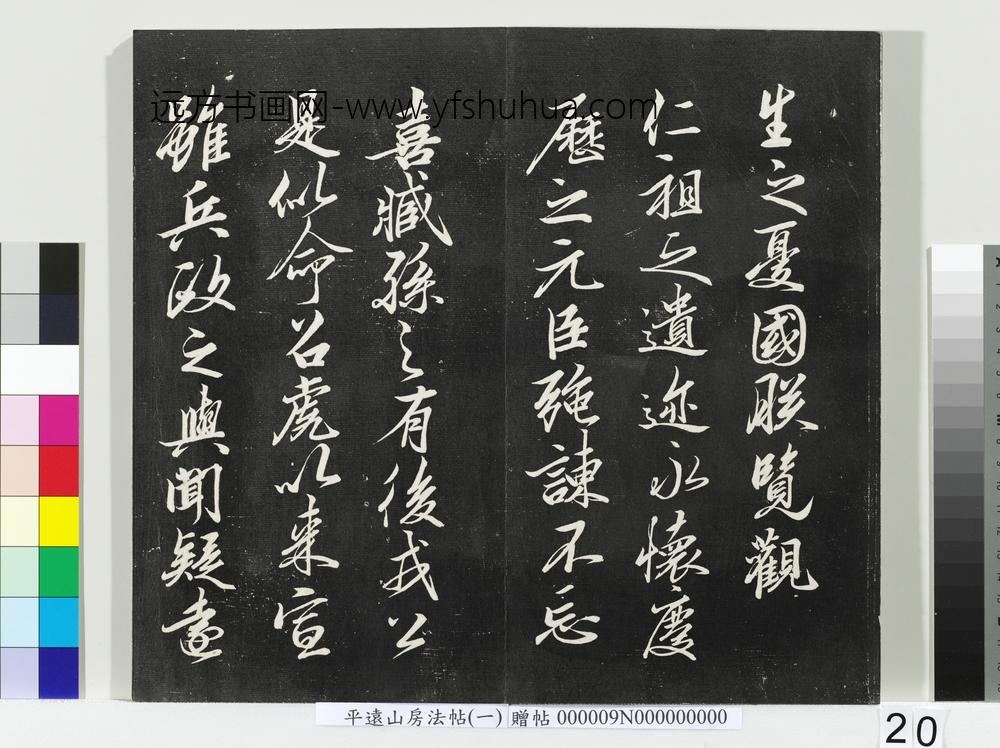 远方书画网-www.yfshuhua.com
生之憂國朕覽觀
仁祖之遺迹永懷慶
曆之元臣強諫不忘
喜臧孫之有後戎公
是似命召虎以来宣
雖兵政之與聞疑遠
平遠山房法帖(一) 贈帖 000009N000000000
20